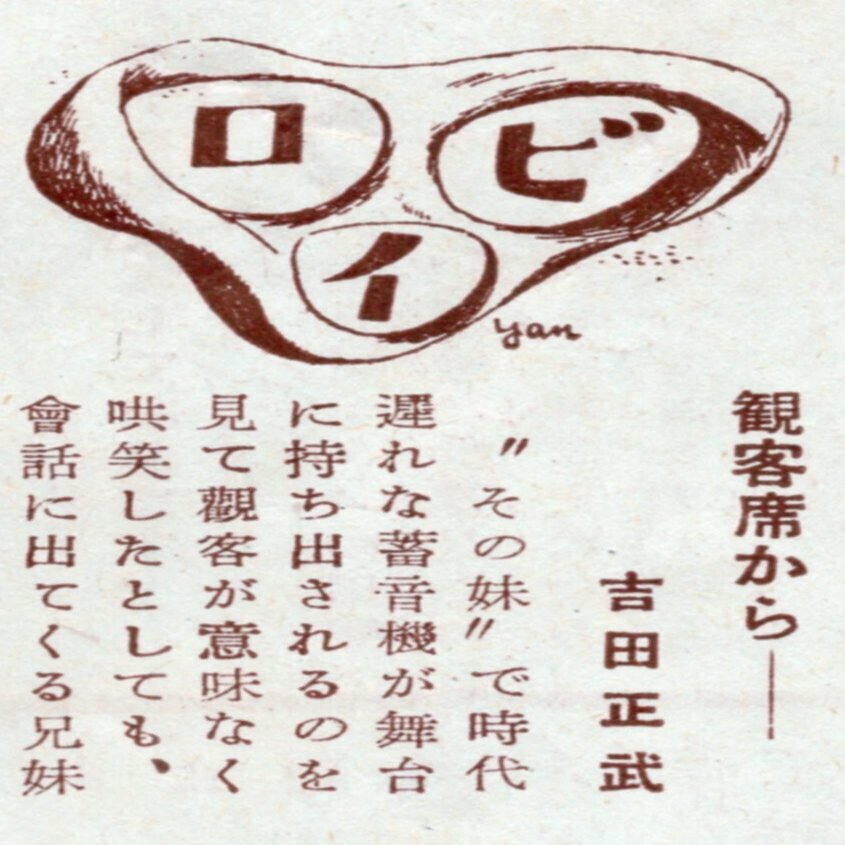 ロビイ
yan
観客席から——
吉田正武
〃その妹〃で時代
遅れな蓄音機が舞台
に持ち出されるのを
見て觀客が意味なく
哄笑したとしても、
會話に出てくる兄妹